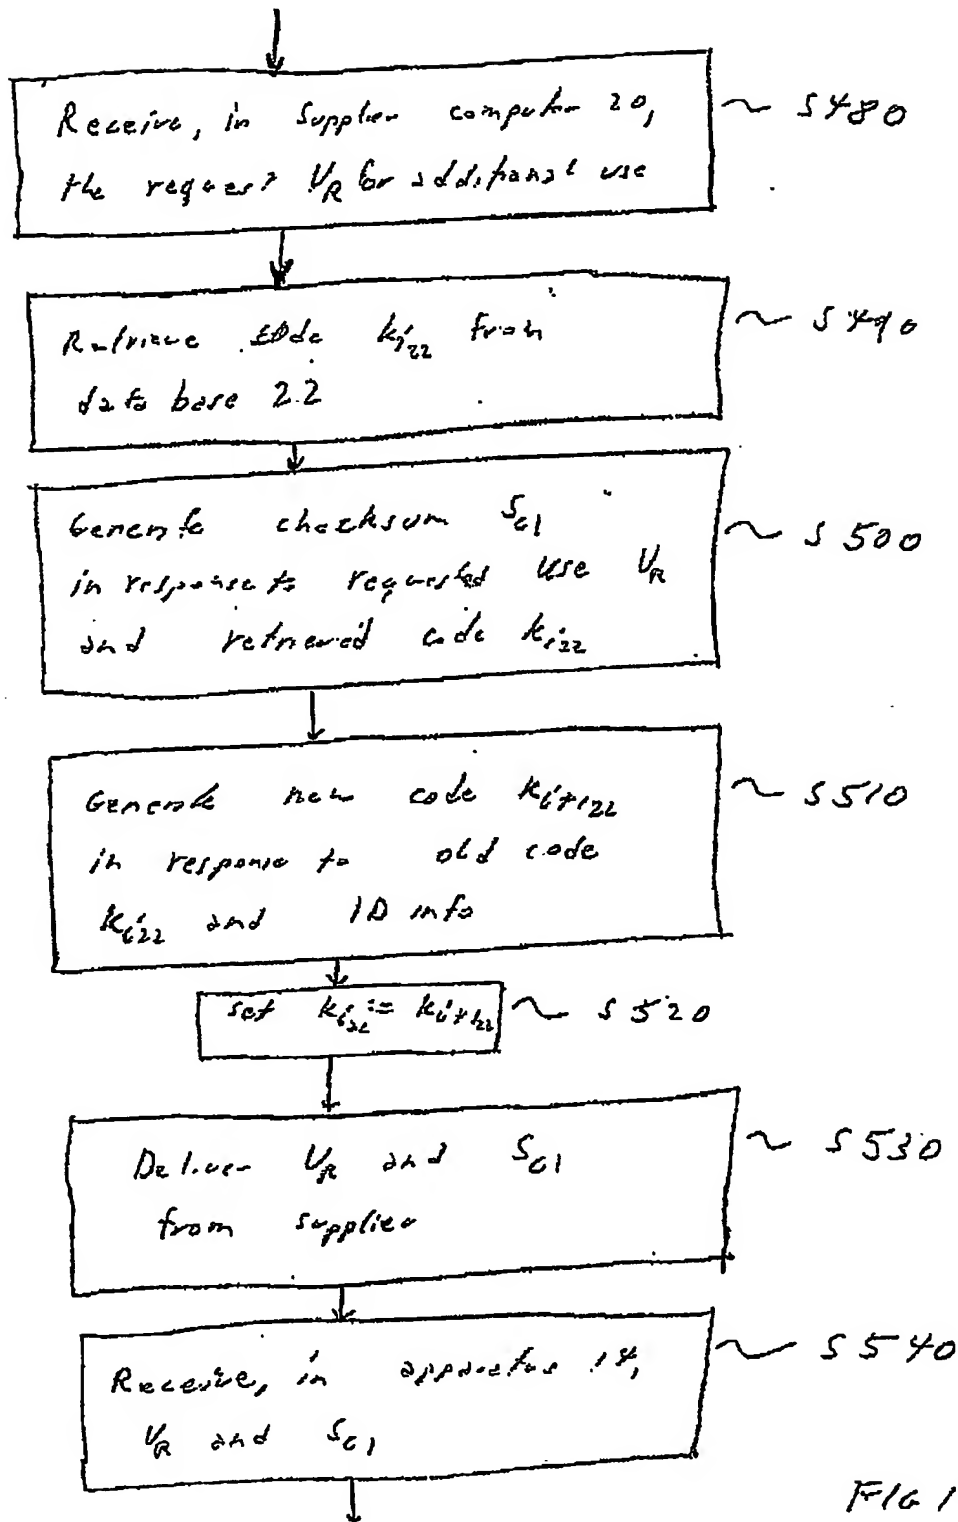 Receive, in supplier computer 20,
the request U_R for additional use
~ S480
Retrieve code k_i22 from
data base 22
~ S490
Generate checksum S_C1
in response to requested use U_R
and retrieved code k_i22
~ S500
Generate new code k_i+1 22
in response to old code
k_i22 and ID info
~ S510
set k_i22 := k_i+1 22
~ S520
Deliver U_R and S_C1
from supplier
~ S530
Receive, in apparatus 14,
U_R and S_C1
~ S540
FIG 1